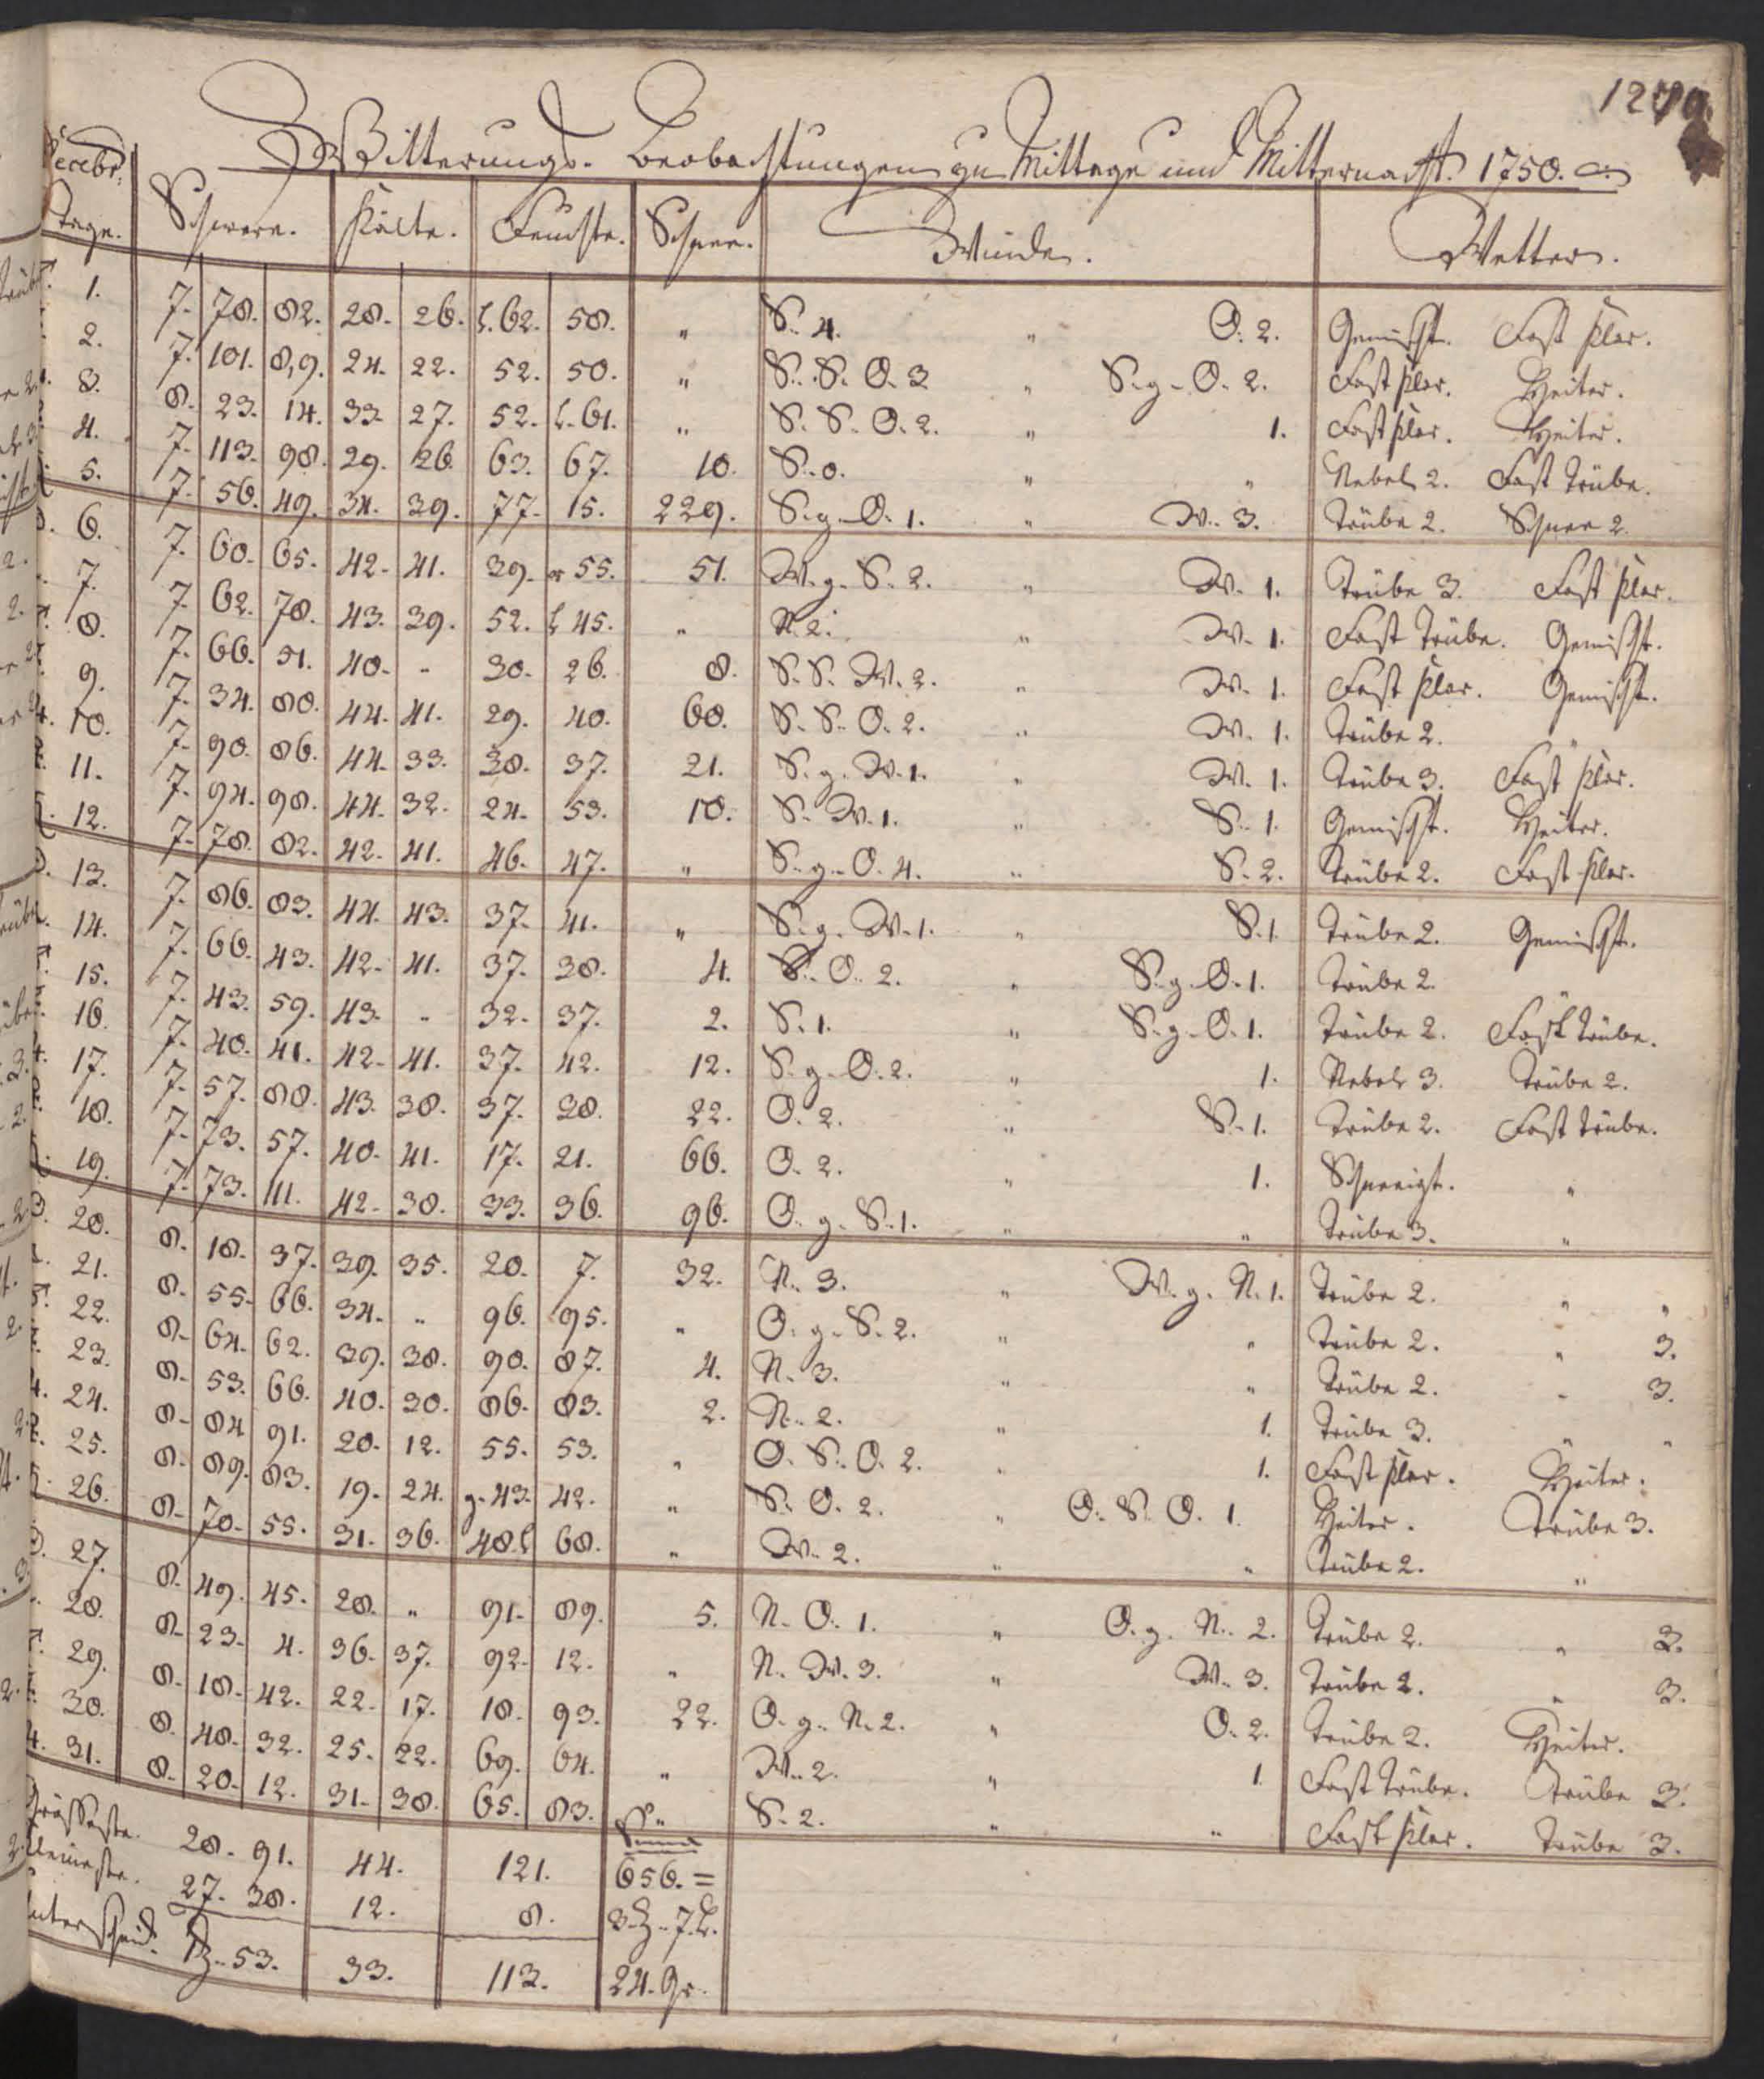 1270.
Witterungs-Beobachtungen zu Mittage und Mitternacht. 1750.
Decebr:
Tage. Schwere. Kälte. Feuchte. Schnee. Winde. Wetter.
1. 7. 78. 82. 28. 26. 62. 58. „ S. 4. „ O. 2. Gemischt. Fast klar.
2. 7. 101. 89. 24. 22. 52. 50. „ S. S. O. 3 „ S. g. O. 2. Fast klar. Heiter.
3. 8. 23. 14. 33. 27. 52. 61. „ S. S. O. 2. „ 1. Fast klar. Heiter.
4. 7. 113. 98. 29. 26. 63. 67. 10. S. 0. „ „ Nebel 2. Fast Trübe.
5. 7. 56. 49. 34. 39. 77. 15. 229. S. g. O. 1. „ W. 3. Trübe 2. Schnee 2.
6. 7. 60. 65. 42. 41. 39. 55. 51. W. g. S. 2. „ W. 1. Trübe 3. Fast klar.
7. 7. 62. 78. 43. 39. 52. 45. „ N. 2. „ W. 1. Fast Trübe. Gemischt.
8. 7. 66. 51. 40. „ 30. 26. 8. S. S. W. 2. „ W. 1. Fast klar. Gemischt.
9. 7. 34. 80. 44. 41. 29. 40. 60. S. S. O. 2. „ W. 1. Trübe 2. „
10. 7. 90. 86. 44. 33. 38. 37. 21. S. g. W. 1. „ W. 1. Trübe 3. Fast klar.
11. 7. 94. 98. 44. 32. 24. 53. 10. S. W. 1. „ S. 1. Gemischt. Heiter.
12. 7. 78. 82. 42. 41. 46. 47. „ S. g. O. 4. „ S. 2. Trübe 2. Fast klar.
13. 7. 86. 83. 44. 43. 37. 41. „ S. g. W. 1. „ S. 1. Trübe 2. Gemischt.
14. 7. 66. 43. 42. 41. 37. 38. 4. S. O. 2. „ S. g. O. 1. Trübe 2.
15. 7. 43. 59. 43. „ 32. 37. 2. S. 1. „ S. g. O. 1. Trübe 2. Fast Trübe.
16. 7. 40. 41. 42. 41. 37. 42. 12. S. g. O. 2. „ 1. Nebel 3. Trübe 2.
17. 7. 57. 88. 43. 38. 37. 28. 22. O. 2. „ S. 1. Trübe 2. Fast trübe.
18. 7. 73. 57. 40. 41. 17. 21. 66. O. 2. „ 1. Schneeigt. „
19. 7. 73. 111. 42. 38. 33. 36. 96. O. g. S. 1. „ „ Trübe 3. „
20. 8. 18. 37. 39. 35. 20. 7. 32. N. 3. „ W. g. N. 1. Trübe 2. „ „
21. 8. 55. 66. 34. „ 96. 95. „ O. g. S. 2. „ „ Trübe 2. „ 3.
22. 8. 64. 62. 39. 38. 90. 87. 4. N. 3. „ „ Trübe 2. „ 3.
23. 8. 53. 66. 40. 30. 86. 83. 2. N. 2. „ 1. Trübe 3. „ „
24. 8. 84 91. 20. 12. 55. 53. „ O. S. O. 2. „ 1. Fast klar. Heiter.
25. 8. 89. 83. 19. 24. g. 43. 42. „ S. O. 2. „ O. S. O. 1. Heiter. Trübe 3.
26. 8. 70. 55. 31. 36. 48. 68. „ W. 2. „ „ Trübe 2. „
27. 8. 49. 45. 28. „ 91. 89. 5. N. O. 1. „ O. g. N. 2. Trübe 2. „ 3.
28. 8. 23. 4. 36. 37. 92. 12. „ N. W. 3. „ W. 3. Trübe 2. „ 3.
29. 8. 18. 42. 22. 17. 18. 93. 22. O. g. N. 2. „ O. 2. Trübe 2. Heiter.
30. 8. 48. 32. 25. 22. 69. 64. „ W. 2. „ 1. Fast trübe. Trübe 3.
31. 8. 20. 12. 31. 38. 65. 83. „ S. 2. „ „ Fast klar. Trübe 3.
28. 91. 44. 121. 656. =
27. 38. 12. 8. 3. 7.
53. 33. 113. 24. Gr.